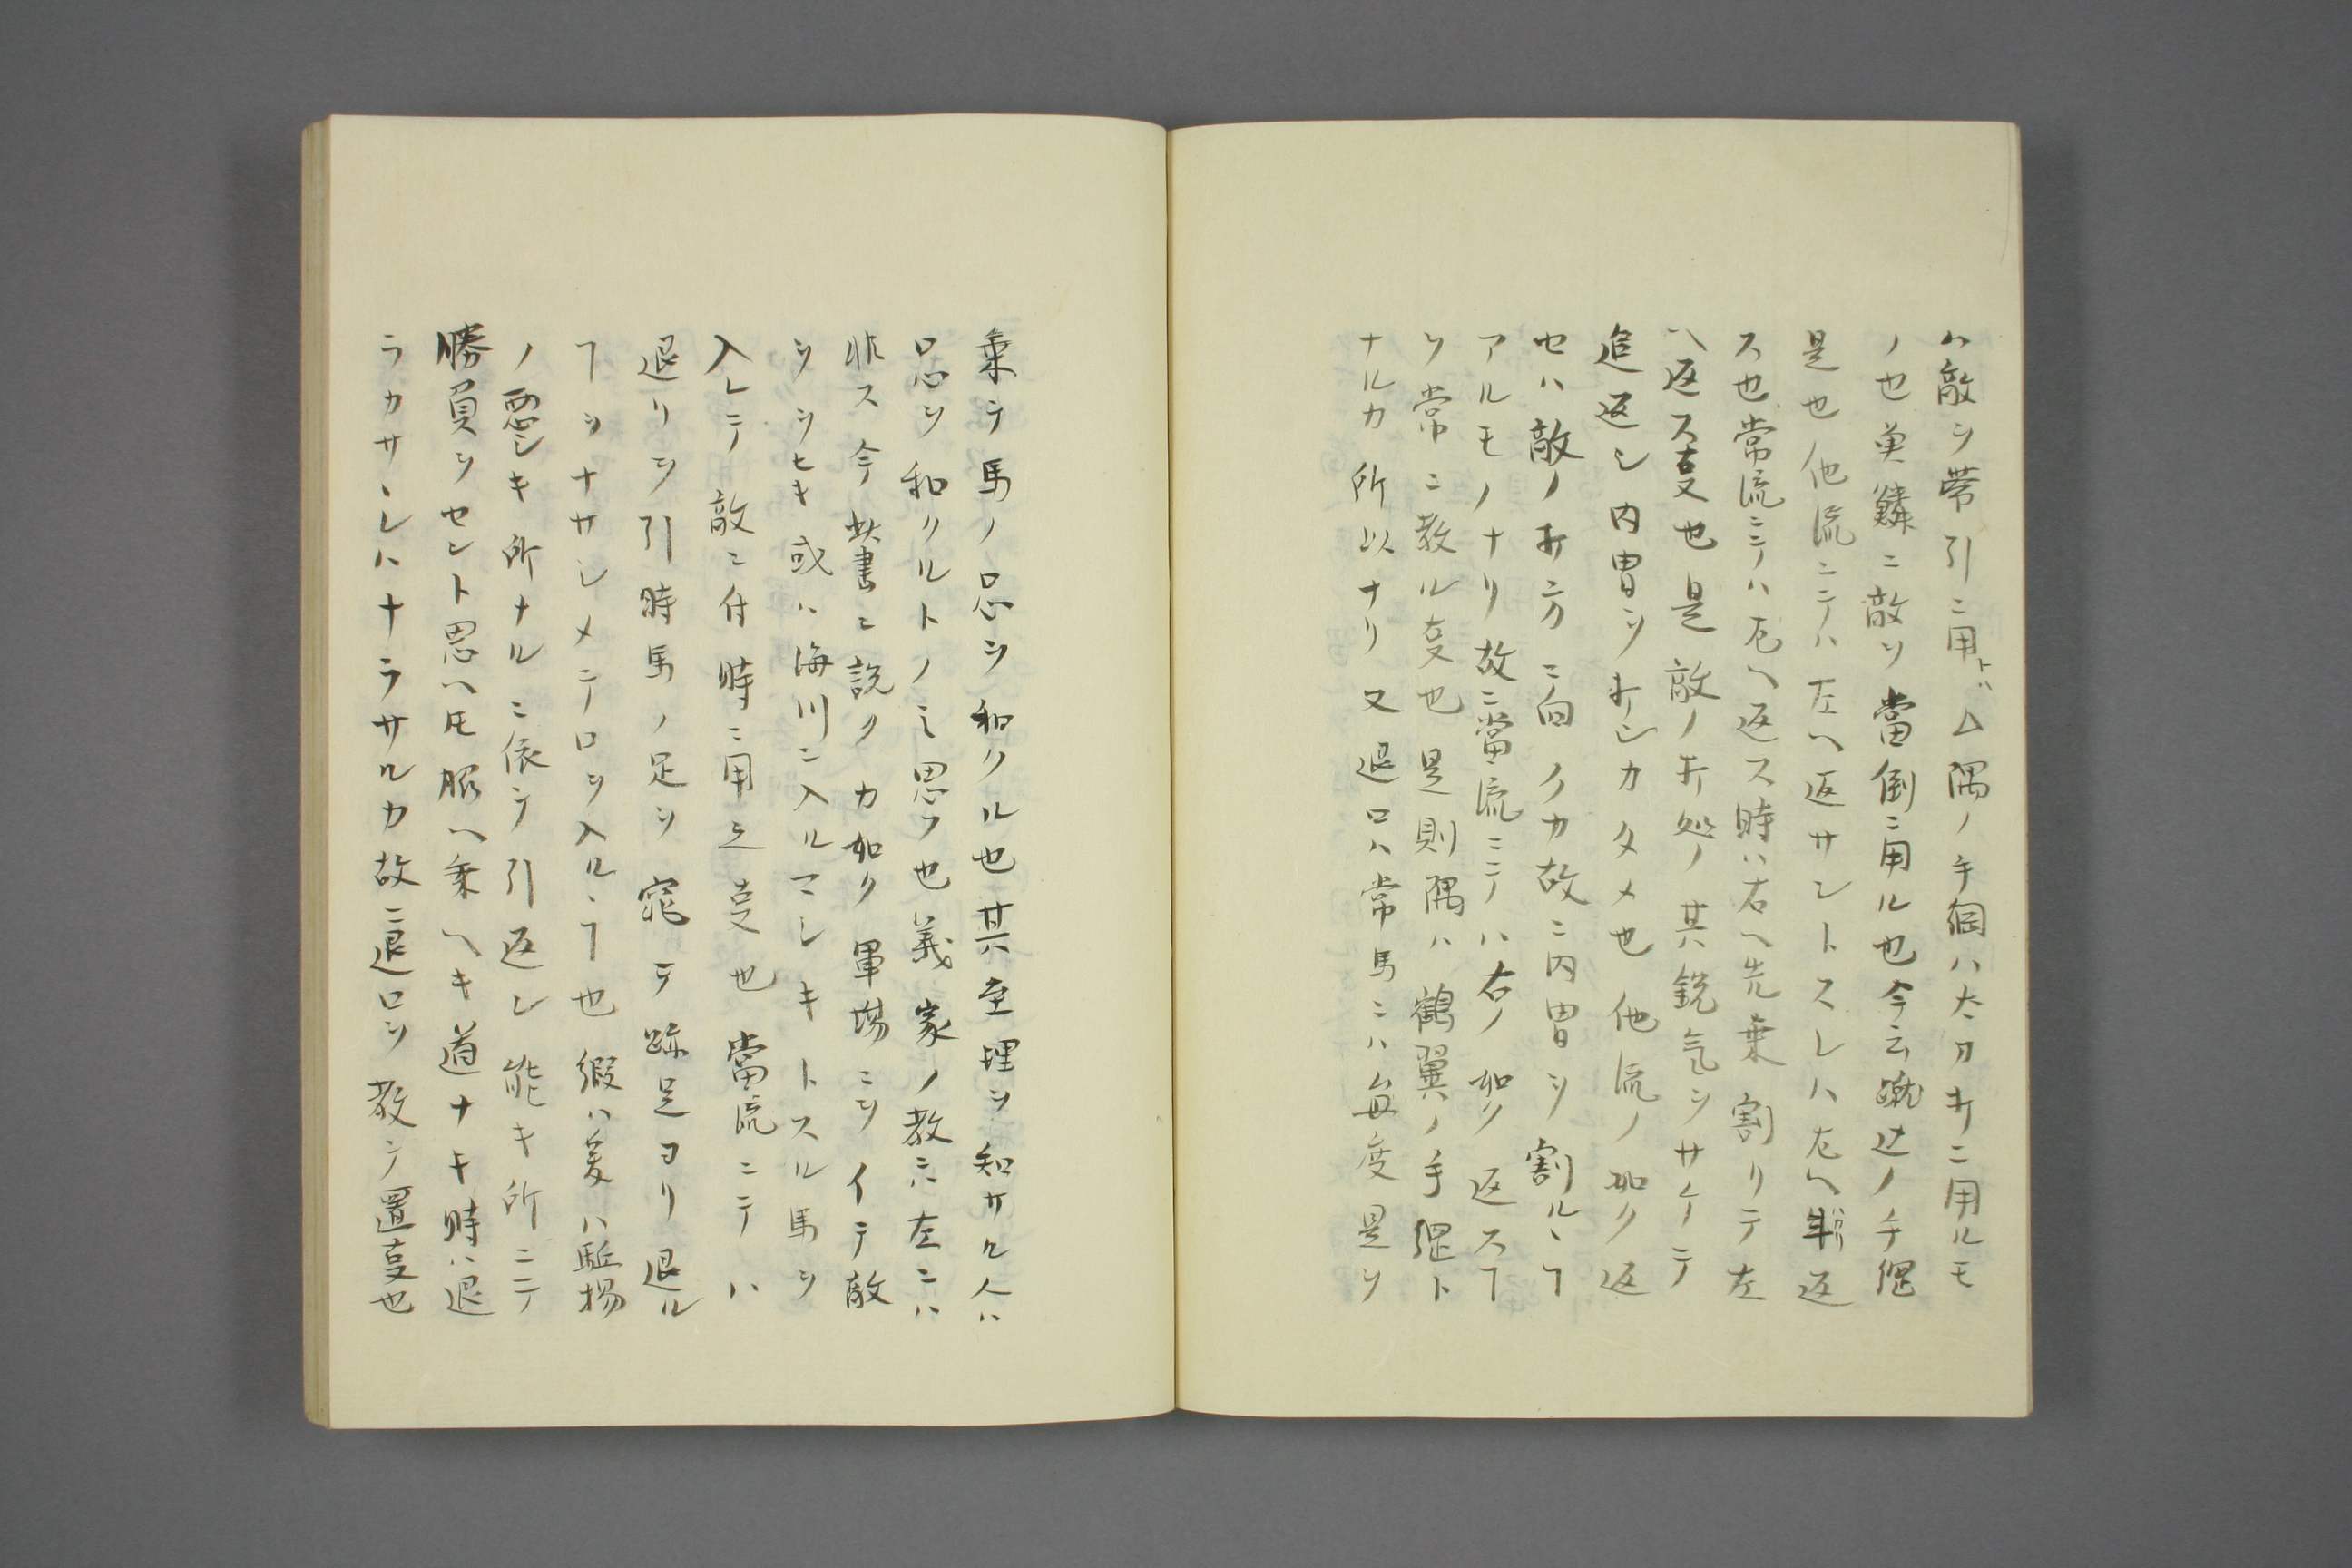 ハ敵ヲ帯引ニ用トハム隅ノ手綱ハ太刀打ニ用ルモ
ノ也魚鱗ニ敵ヲ當倒ニ用ル也今云蹴込ノ手綱
是也他流ニテハ左ヘ返サントスレハ左ヘ返
ス也常流ニテハ左ヘ返ス時ハ右ヘ先乗割リテ左
ヘ返ス叓也是敵ノ打処ノ其鋭气ヲサケテ
追返シ内冑ヲ打レカタメ也他流ノ如ク返
セハ敵ノ打方ニ向クカ故ニ内冑ヲ割ルヽヿ
アルモノナリ故ニ當流ニテハ右ノ如ク返スヿ
ヲ常ニ教ル叓也是則隅ハ鶴翼ノ手綱ト
ナルカ所以ナリ又退口ハ常馬ニハ毎度是ヲ
乗テ馬ノ口心ヲ和クル也其至理ヲ知サル人ハ
口心ヲ和クルトノミ思フ也義家ノ教ニハ左ニハ
非ス今此書ニ説クカ如ク軍場ニヲイテ敵
ヲシヒキ或ハ海川ニ入ルマシキトスル馬ヲ
入レテ敵ニ付時ニ用之叓也當流ニテハ
退リヲ引時馬ノ足ヲ窕テ跡足ヨリ退ル
ヿヲナサシメテロヲ入ルヽヿ也縦ハ爰ハ駈場
ノ悪シキ所ナルニ依テ引返シ能キ所ニテ
勝負ヲセント思ヘ𪜈脇ヘ乗ヘキ道ナキ時ハ退
ラカサヽレハナラサルカ故ニ退口ヲ教ヲ置叓也